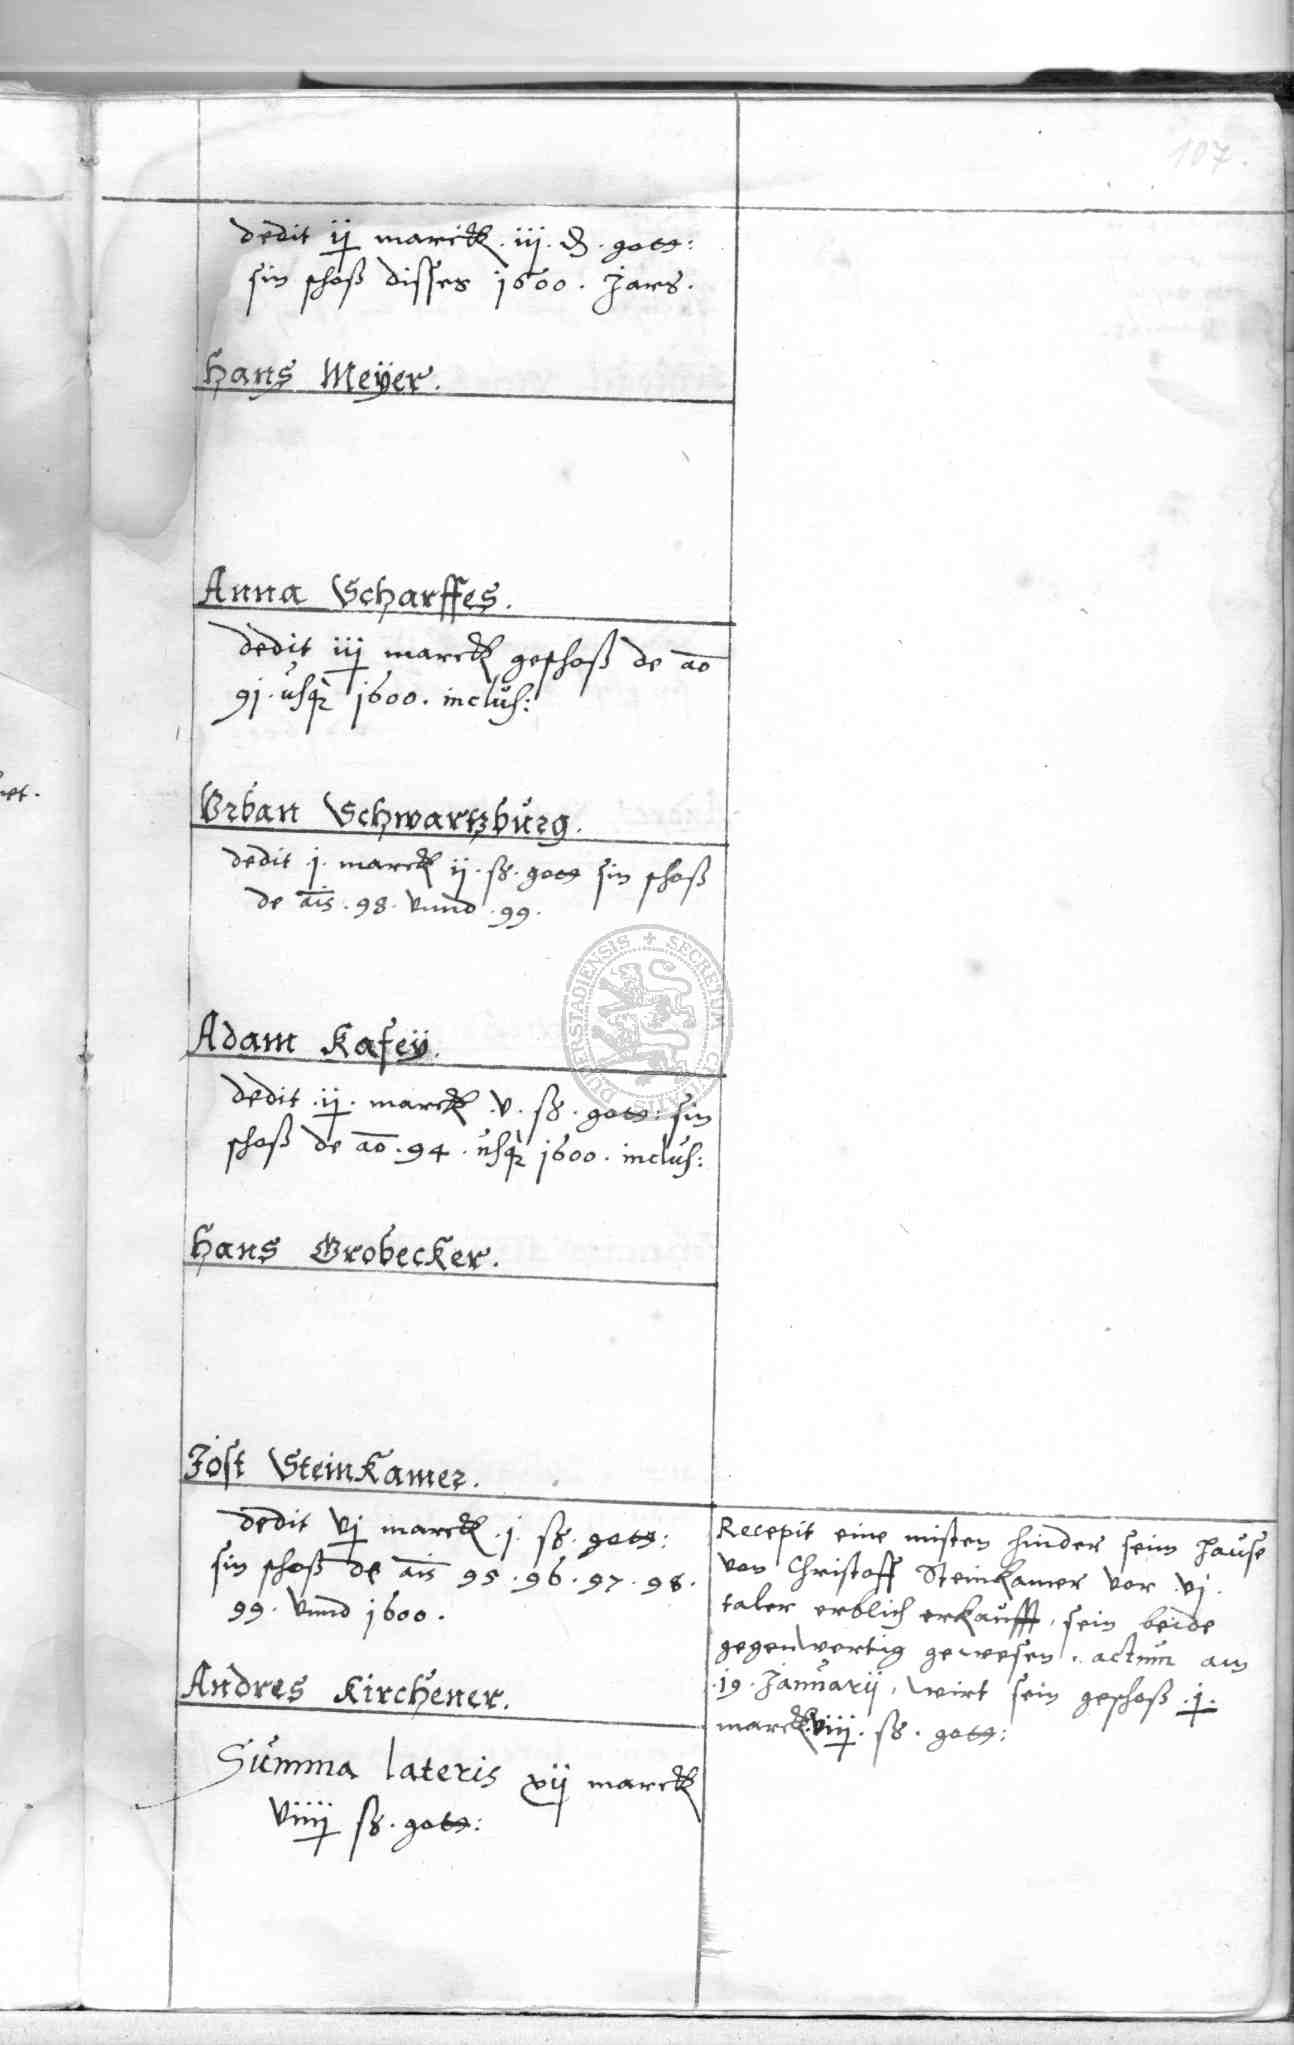 107.
dedit ij marck . iij . ₰ . gott:
sin schoß disses 1600 . Jars .
Hans Meÿer .
Anna Scharffes .
dedit iij marck geschoß de ao
91 . usq 1600 . inclus:
Vrban Schwartzburg .
dedit .j. marck ij . ß . gott sin schoß
de ais . 98 . vnnd . 99 .
Adam Kafeÿ .
dedit .ij. marck .v. ß . gott: sin
schoß de ao . 94 . usq 1600 . inclus:
Hans Grobecker .
Jost Steinkamer .
dedit vj marck . j . ß . gott:
sin schoß de ais 95 . 96 . 97 . 98 .
99 . vnnd 1600 .
Andres Kirchener .
Summa lateris xvij marck
viiij ß . gott:
Recepit eine misten hinder seim hause
von Christoff Steinkamer vor .vj.
taler erblich erkaufft, sein beide
gegenwertig gewesen . actum am
.19. Januarij, wirt sein geschoß .j.
marck viiij . ß . gott:
SECRETUM CIVITATIS DUDERSTADIENSIS